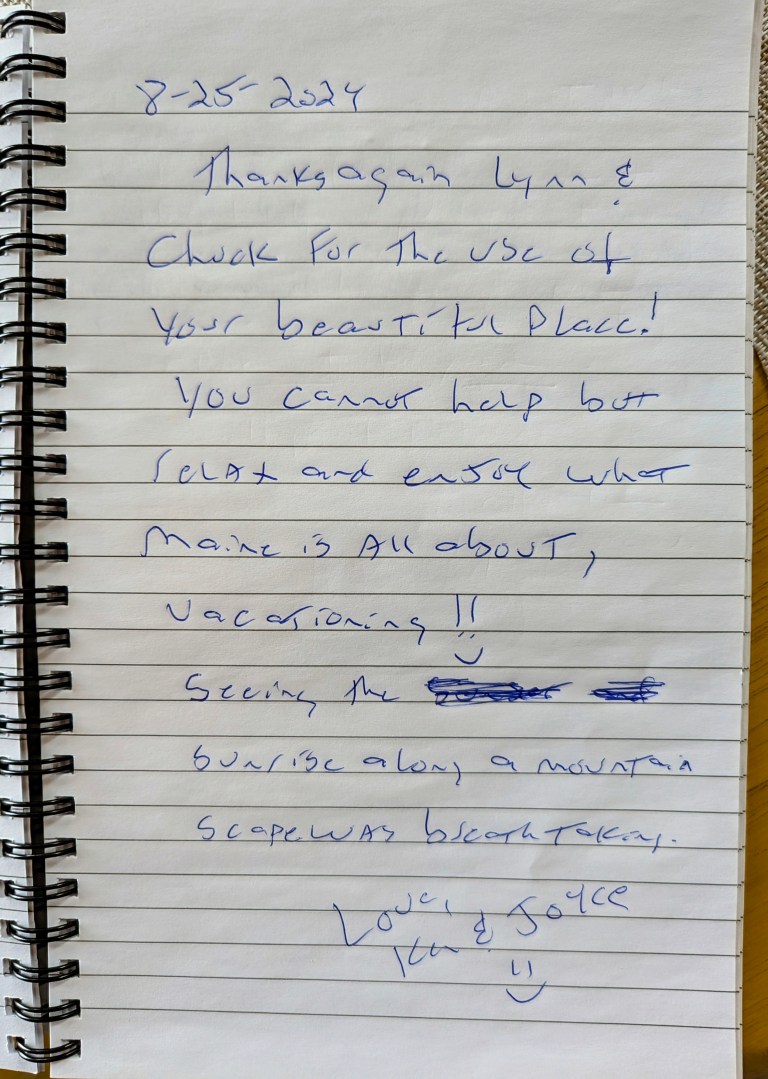 8-25-2024
Thanks again Lynn &
Chuck For The use of
Your beautiful Place!
You cannot help but
relax and enjoy what
Maine is All about,
Vacationing !!
Seeing the
sunrise along a mountain
scape was breathtaking.
Love,
Ken & Joyce